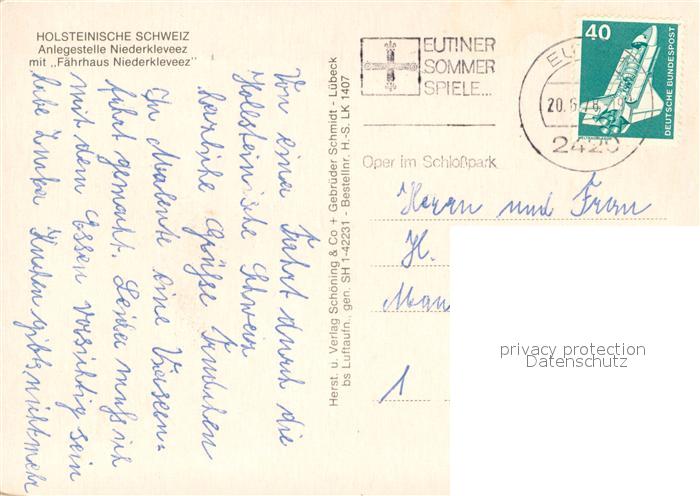 HOLSTEINISCHE SCHWEIZ
Anlegestelle Niederkleveez
mit „Fährhaus Niederkleveez"
Von einer Fahrt durch die
Holsteinische Schweiz
herzliche Grüße Fundchen
In Malente eine Vierseen-
fahrt gemacht. Leider muß ich
mit dem Essen vorsichtig sein
liebe Kuchen gibts nicht mehr
Herst. u. Verlag Schöning & Co + Gebrüder Schmidt - Lübeck
bs Luftaufn., gen. SH 1-42231 - Bestellnr. H.-S. LK 1407
EUTINER
SOMMER
SPIELE...
Oper im Schloßpark
20.6.78
2420
40
DEUTSCHE BUNDESPOST
Herrn und Frau
H.
1
privacy protection
Datenschutz